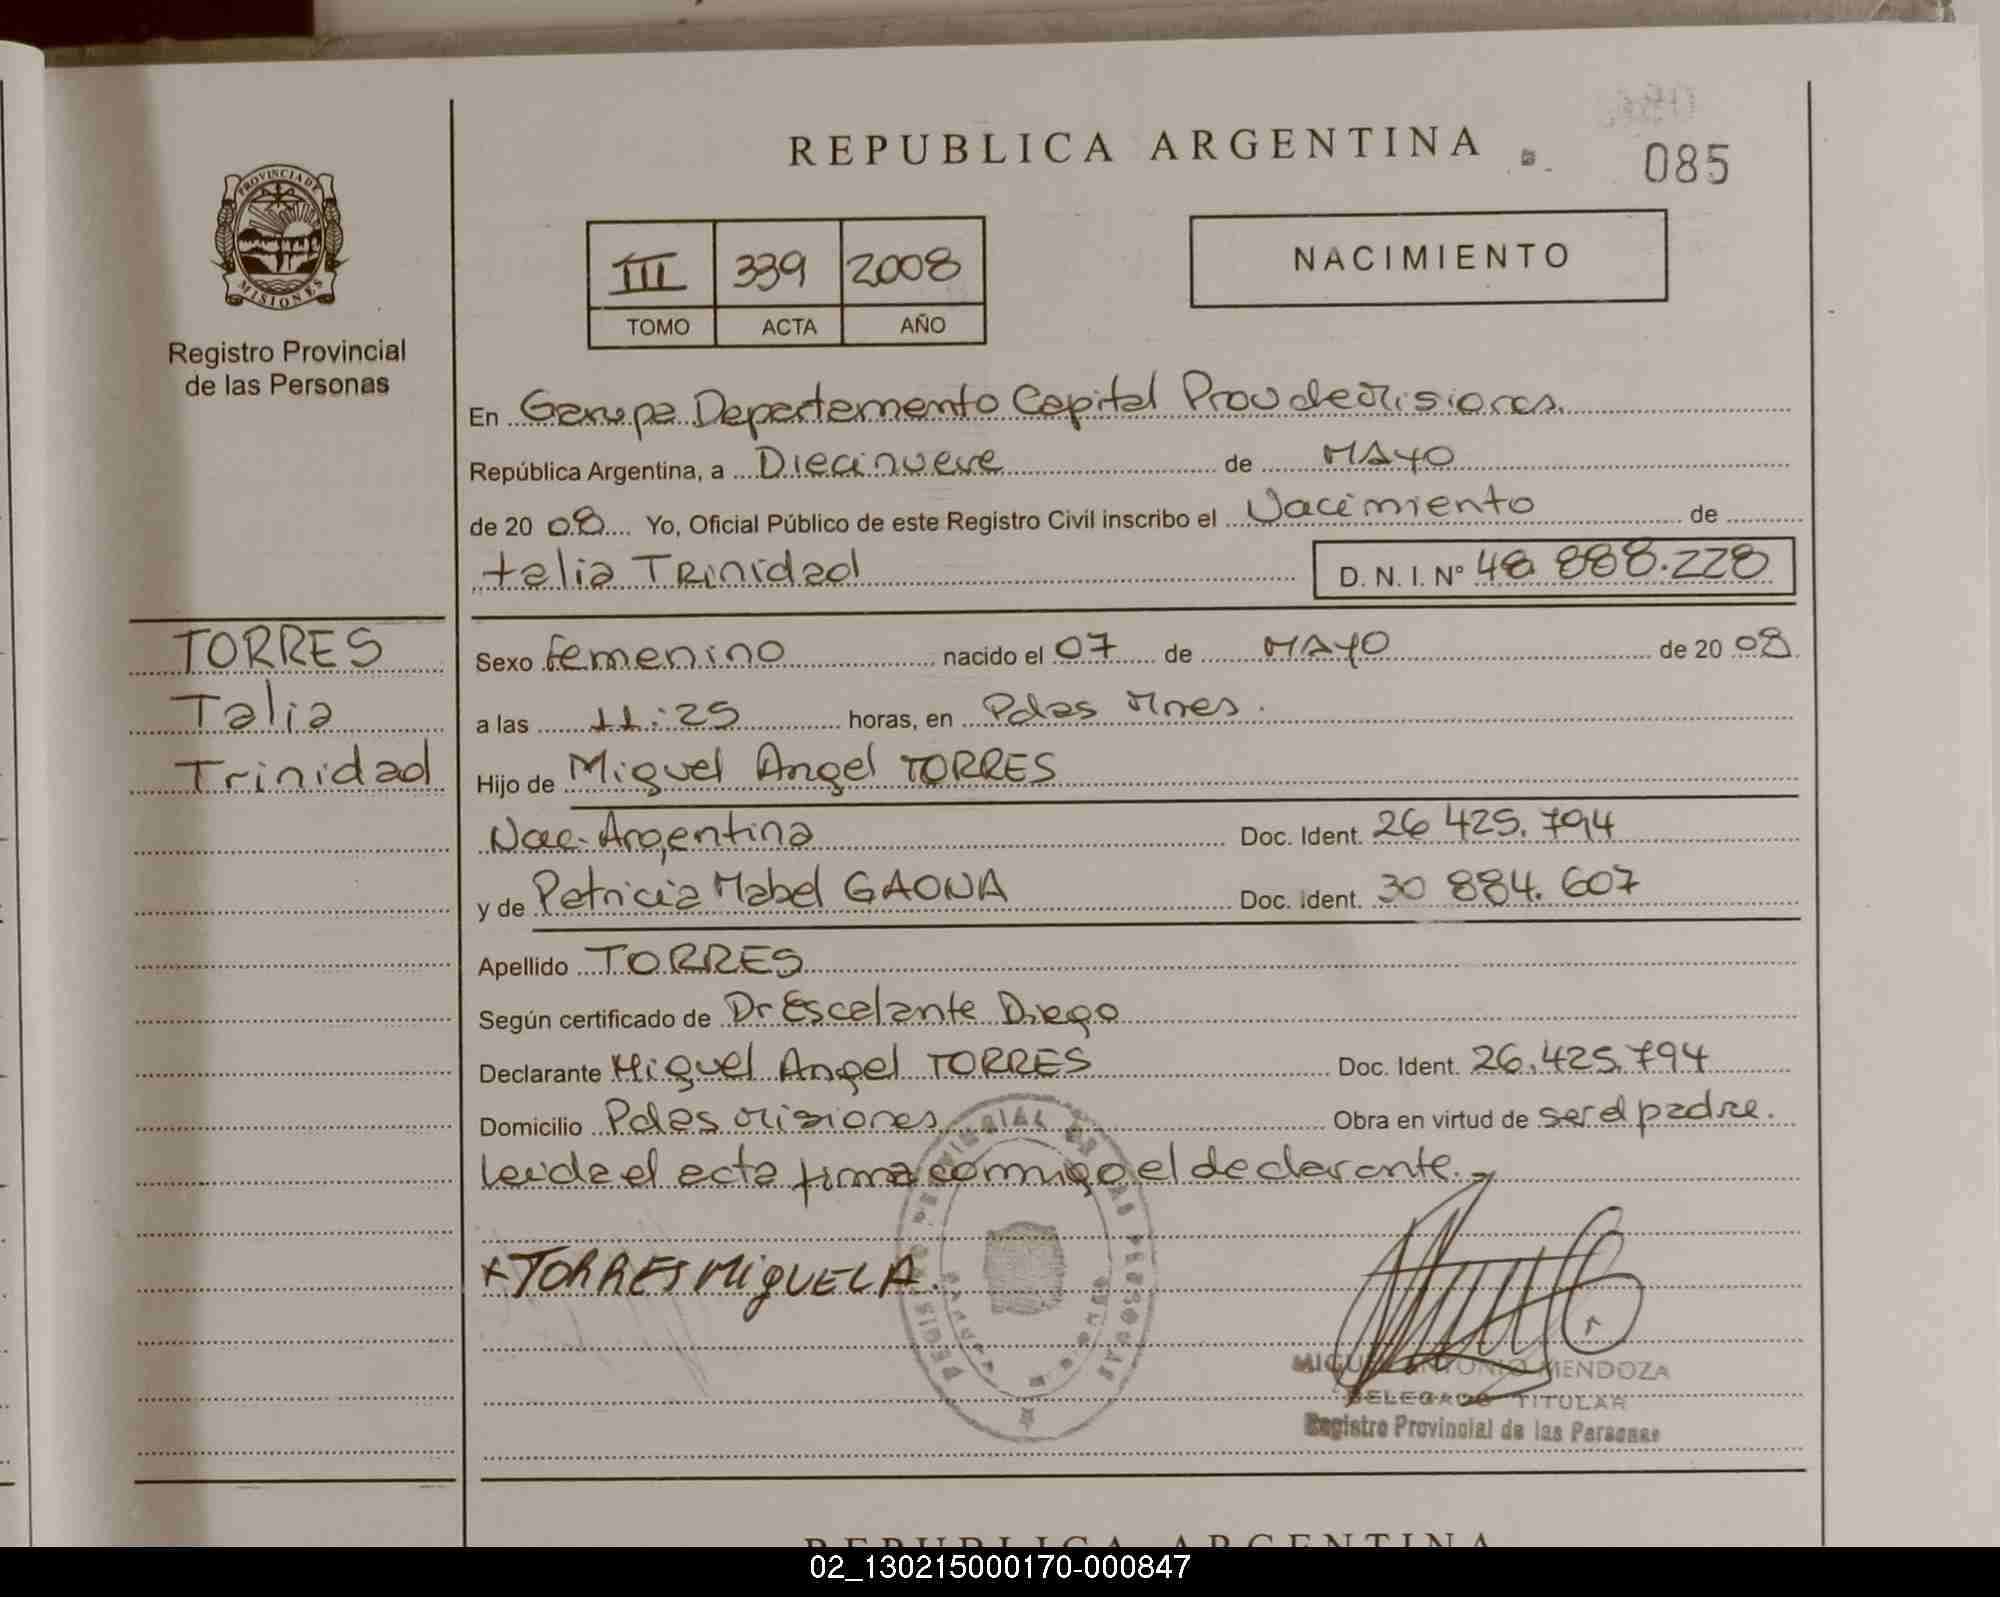 REPUBLICA ARGENTINA
085
PROVINCIA DE
MISIONES
Registro Provincial
de las Personas
III 339 2008
TOMO ACTA AÑO
NACIMIENTO
En Garupa Departamento Capital Prov de Misiones.
República Argentina, a Diecinueve de MAYO
de 20 08 Yo, Oficial Público de este Registro Civil inscribo el Nacimiento de
talia Trinidad D. N. I. Nº 48 888.228
TORRES
Talia
Trinidad
Sexo femenino nacido el 07 de MAYO de 20 08
a las 11:25 horas, en Pdas Mnes.
Hijo de Miguel Angel TORRES
Nac. Argentina Doc. Ident. 26 425.794
y de Patricia Mabel GAONA Doc. Ident. 30 884.607
Apellido TORRES
Según certificado de Dr Escalante Diego
Declarante Miguel Angel TORRES Doc. Ident. 26.425.794
Domicilio Pdas Misiones Obra en virtud de ser el padre.
Leida el acta firma conmigo el declarante.
+TORRES MIGUEL A.
MIGUEL ANTONIO MENDOZA
DELEGADO TITULAR
Registro Provincial de las Personas
REPUBLICA ARGENTINA
02_130215000170-000847